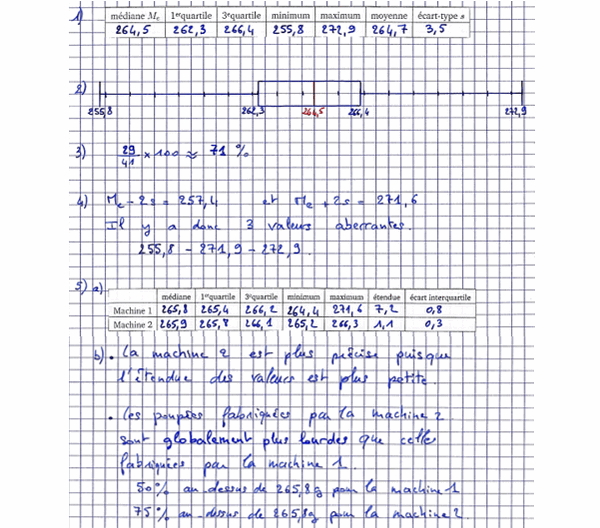 1) médiane Me 1er quartile 3e quartile minimum maximum moyenne écart-type s
264,5 262,3 266,4 255,8 272,9 264,7 3,5
2)
255,8 262,3 264,5 266,4 272,9
3) 29/41 × 100 ≈ 71 %
4) Me - 2s = 257,4 et Me + 2s = 271,6
Il y a donc 3 valeurs aberrantes.
255,8 - 271,9 - 272,9.
5) a)
médiane 1er quartile 3e quartile minimum maximum étendue écart interquartile
Machine 1 265,8 265,4 266,2 264,4 271,6 7,2 0,8
Machine 2 265,9 265,8 266,1 265,2 266,3 1,1 0,3
b) • La machine 2 est plus précise puisque
l'étendue des valeurs est plus petite.
• les poupées fabriquées par la machine 2
sont globalement plus lourdes que celles
fabriquées par la machine 1.
50% au dessus de 265,8g pour la machine 1
75% au dessus de 265,8g pour la machine 2.